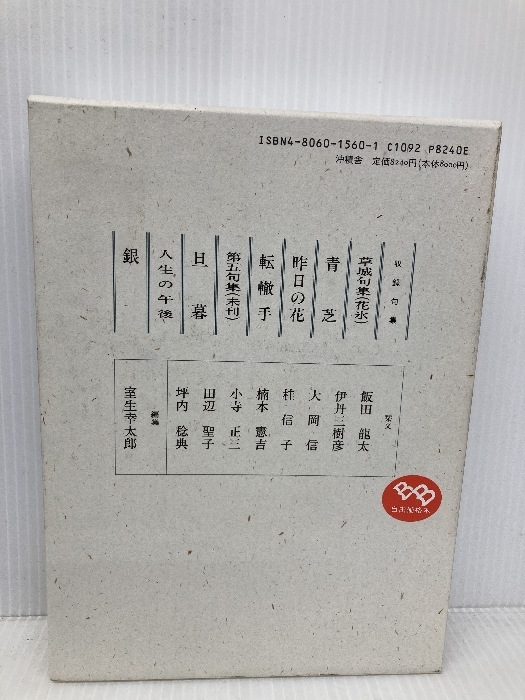 ISBN4-8060-1560-1 C1092 P8240E
沖積舎 定価8240円(本体8000円)
収録句集
草城句集(花氷)
青芝
昨日の花
転轍手
第五句集(未刊)
旦暮
人生の午後
銀
栞文
飯田 龍太
伊丹三樹彦
大岡 信
桂 信子
楠本 憲吉
小寺 正三
田辺 聖子
坪内 稔典
編集
室生幸太郎
BB